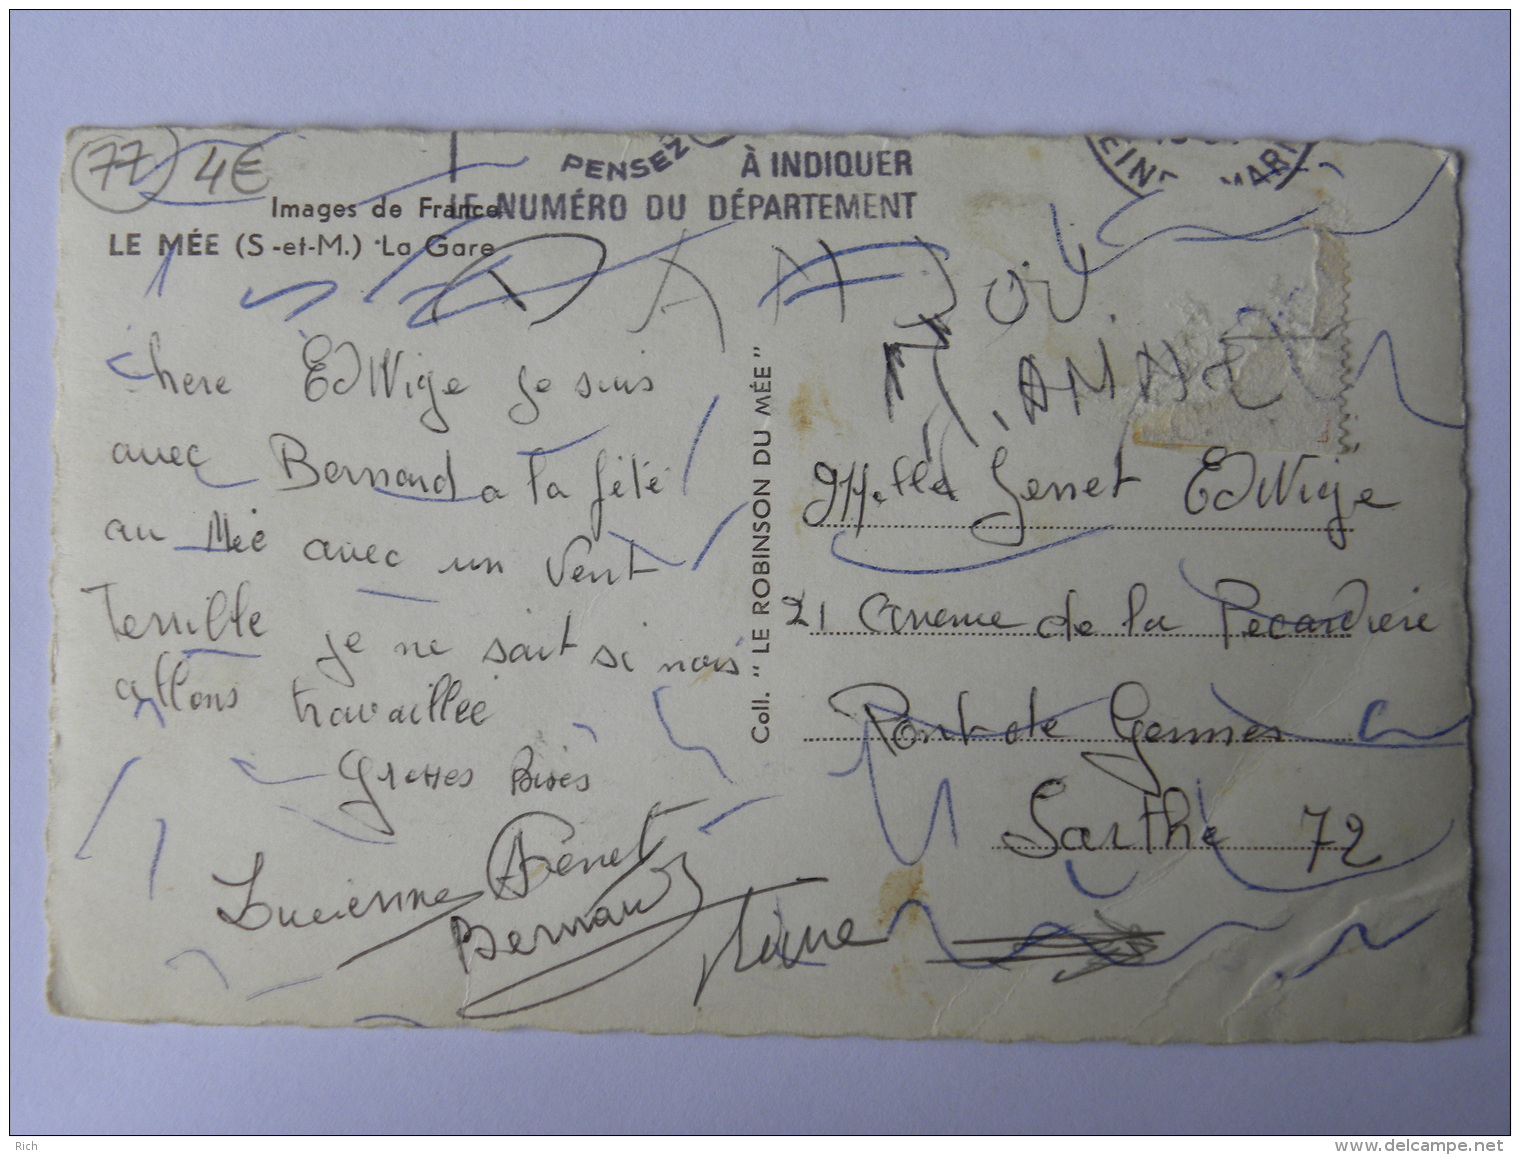 77 4€
PENSEZ À INDIQUER
LE NUMÉRO DU DÉPARTEMENT
EINE MARI
Images de France
LE MÉE (S-et-M.) La Gare
chere EdWige je suis
avec Bernard a la fété
au Mée avec un vent
Terrille je ne sait si nous
allons travaillée
Grosses Bises
Lucienne Genet
Bernard
Coll. "LE ROBINSON DU MÉE"
Melle Genet EdWige
21 avenue de la Pecardiere
Pont de Gennes
Sarthe 72
Rich
www.delcampe.net